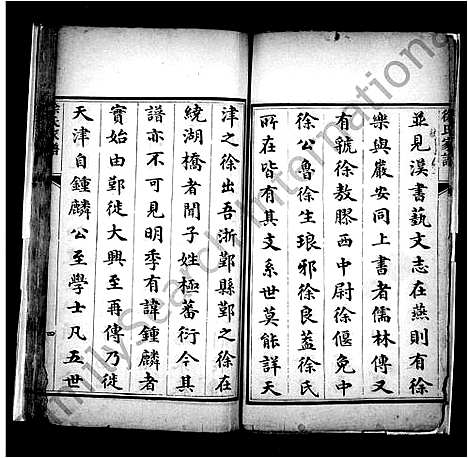 並見漢書藝文志在燕則有徐
樂與嚴安同上書者儒林傳又
有號徐敖膠西中尉徐偃免中
徐公魯徐生琅邪徐良蓋徐氏
所在皆有其支系世莫能詳天
津之徐出吾浙鄞縣鄞之徐在
繞湖橋者聞子姓極蕃衍今其
譜亦不可見明季有諱鍾麟者
實始由鄞徙大興至再傳乃徙
天津自鍾麟公至學士凡五世
徐氏家譜
四
FamilySearch International